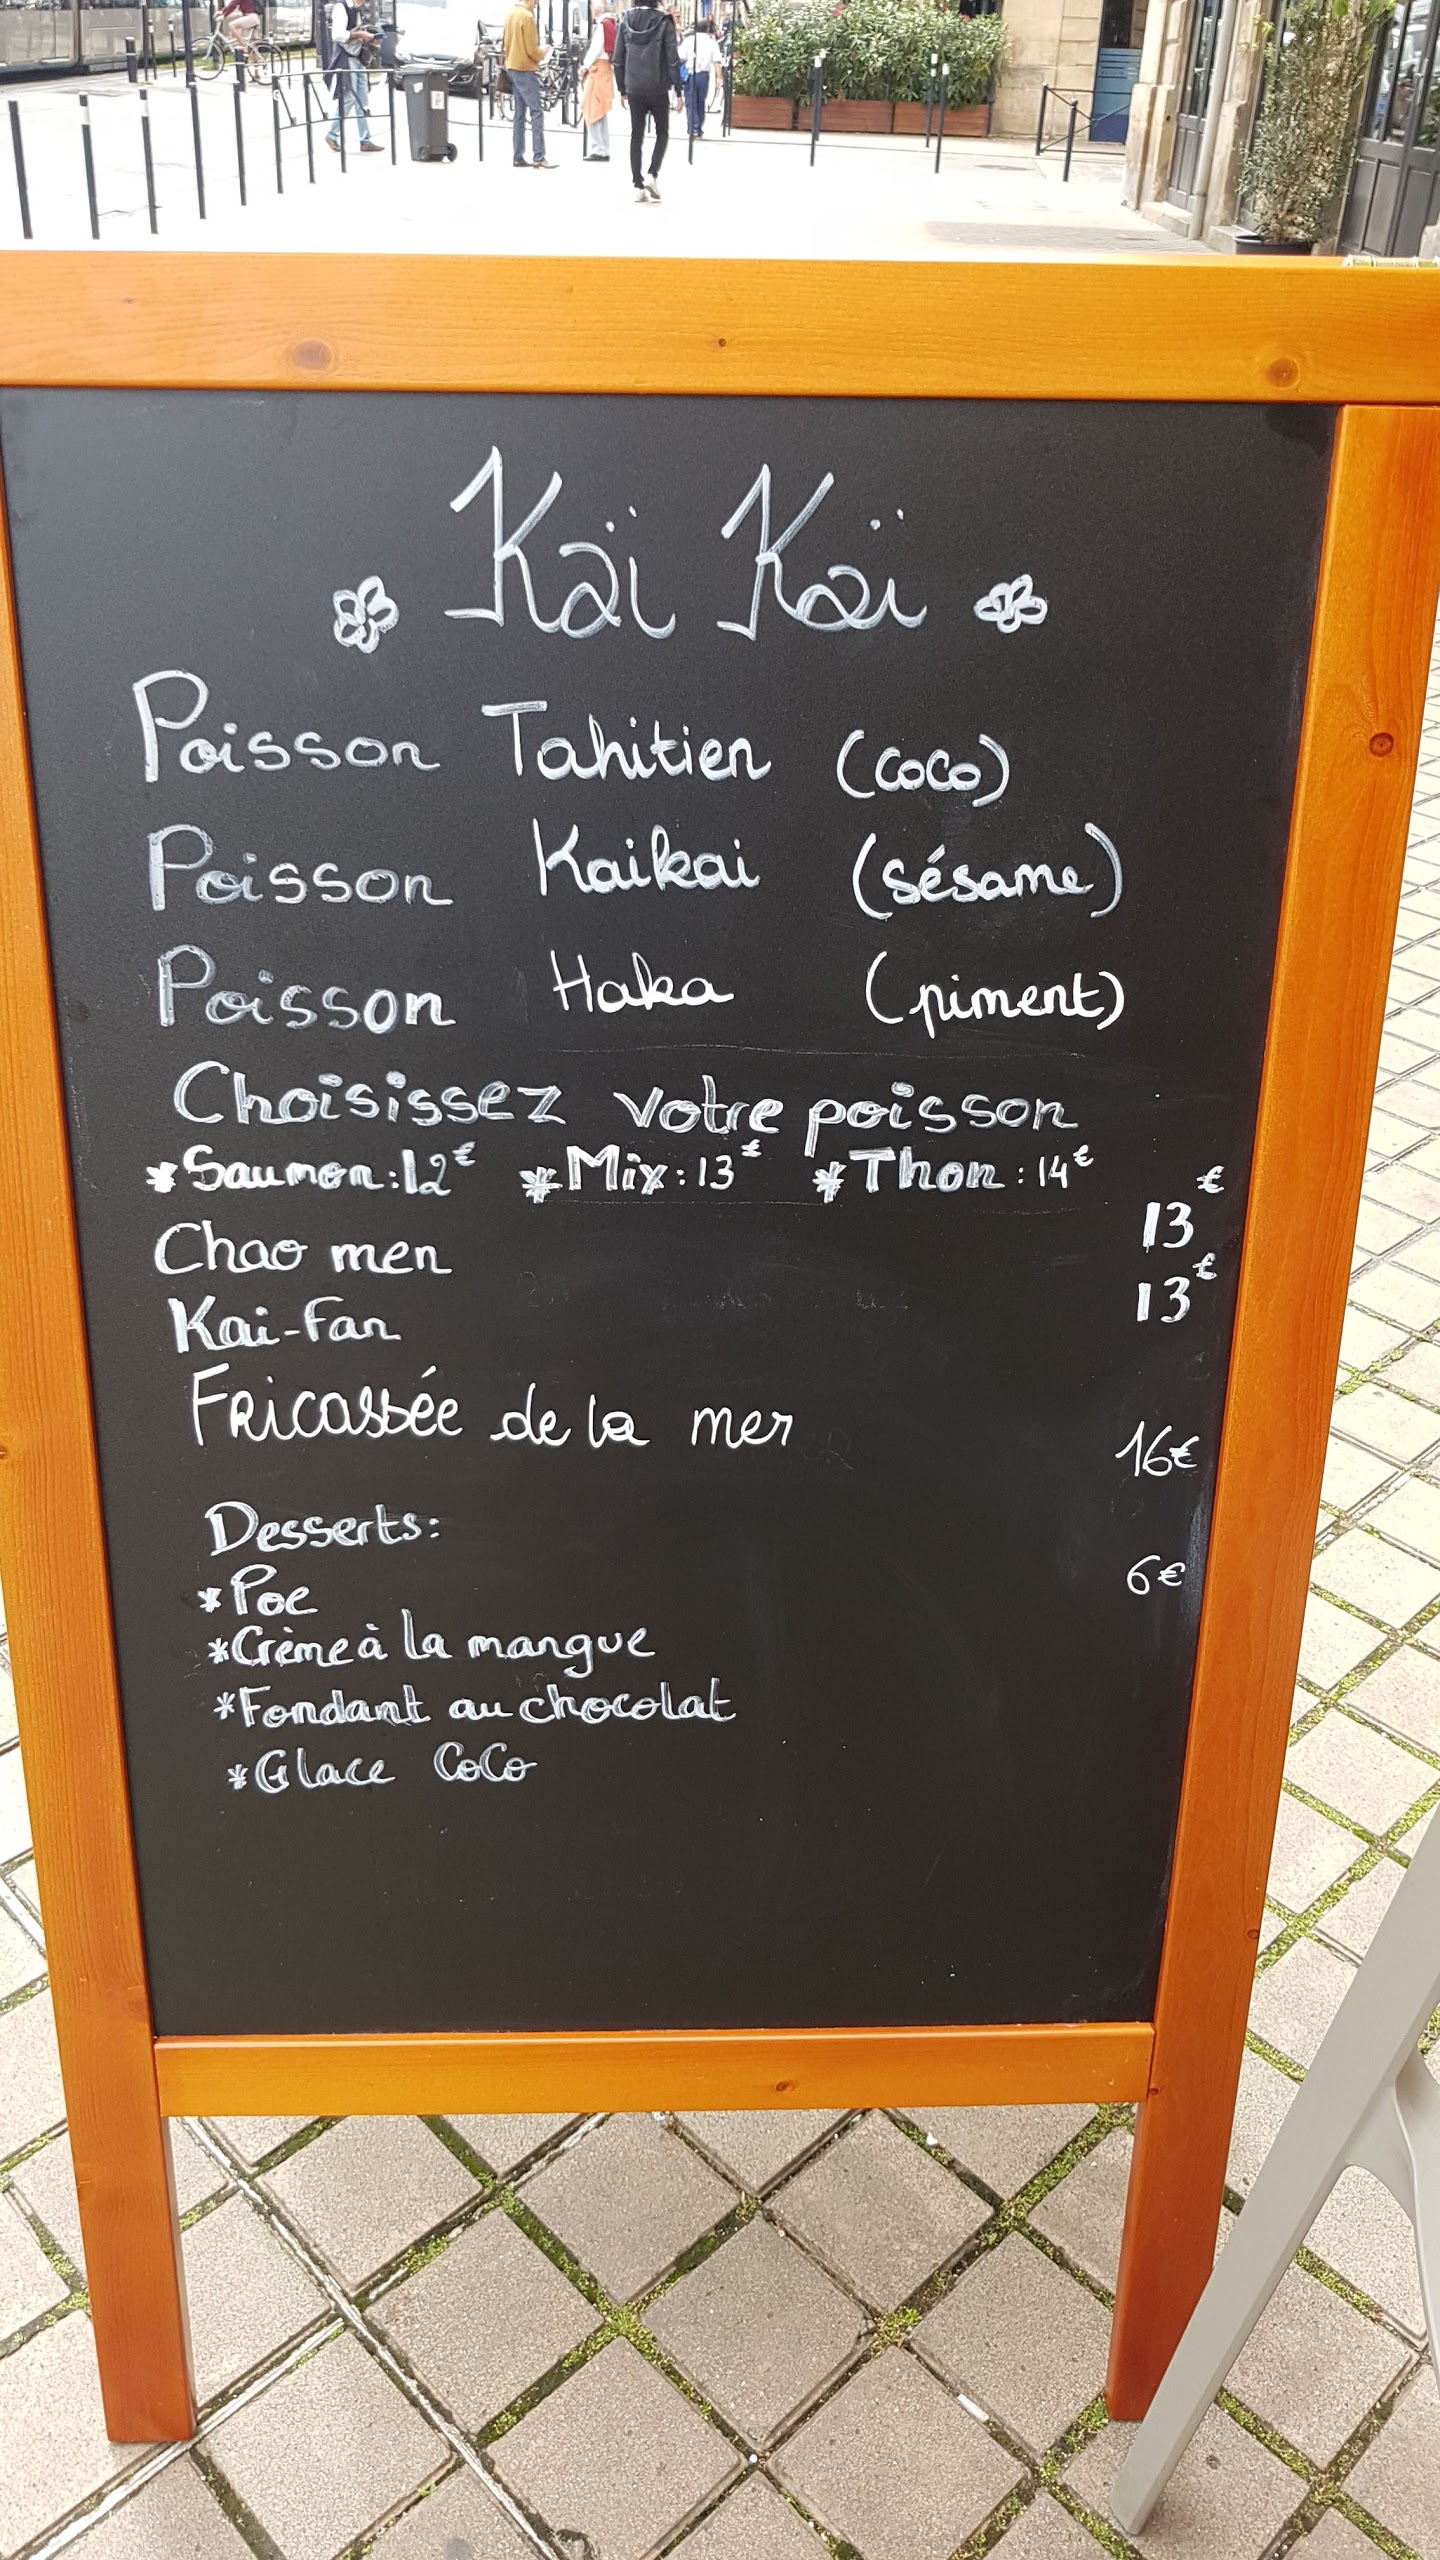 Kaï Kaï
Poisson Tahitien (coco)
Poisson Kaikai (sésame)
Poisson Haka (piment)
Choisissez votre poisson
*Saumon:12€ *Mix:13€ *Thon:14€
Chao men 13€
Kai-Fan 13€
Fricassée de la mer 16€
Desserts: 6€
*Poe
*Crème à la mangue
*Fondant au chocolat
*Glace CoCo